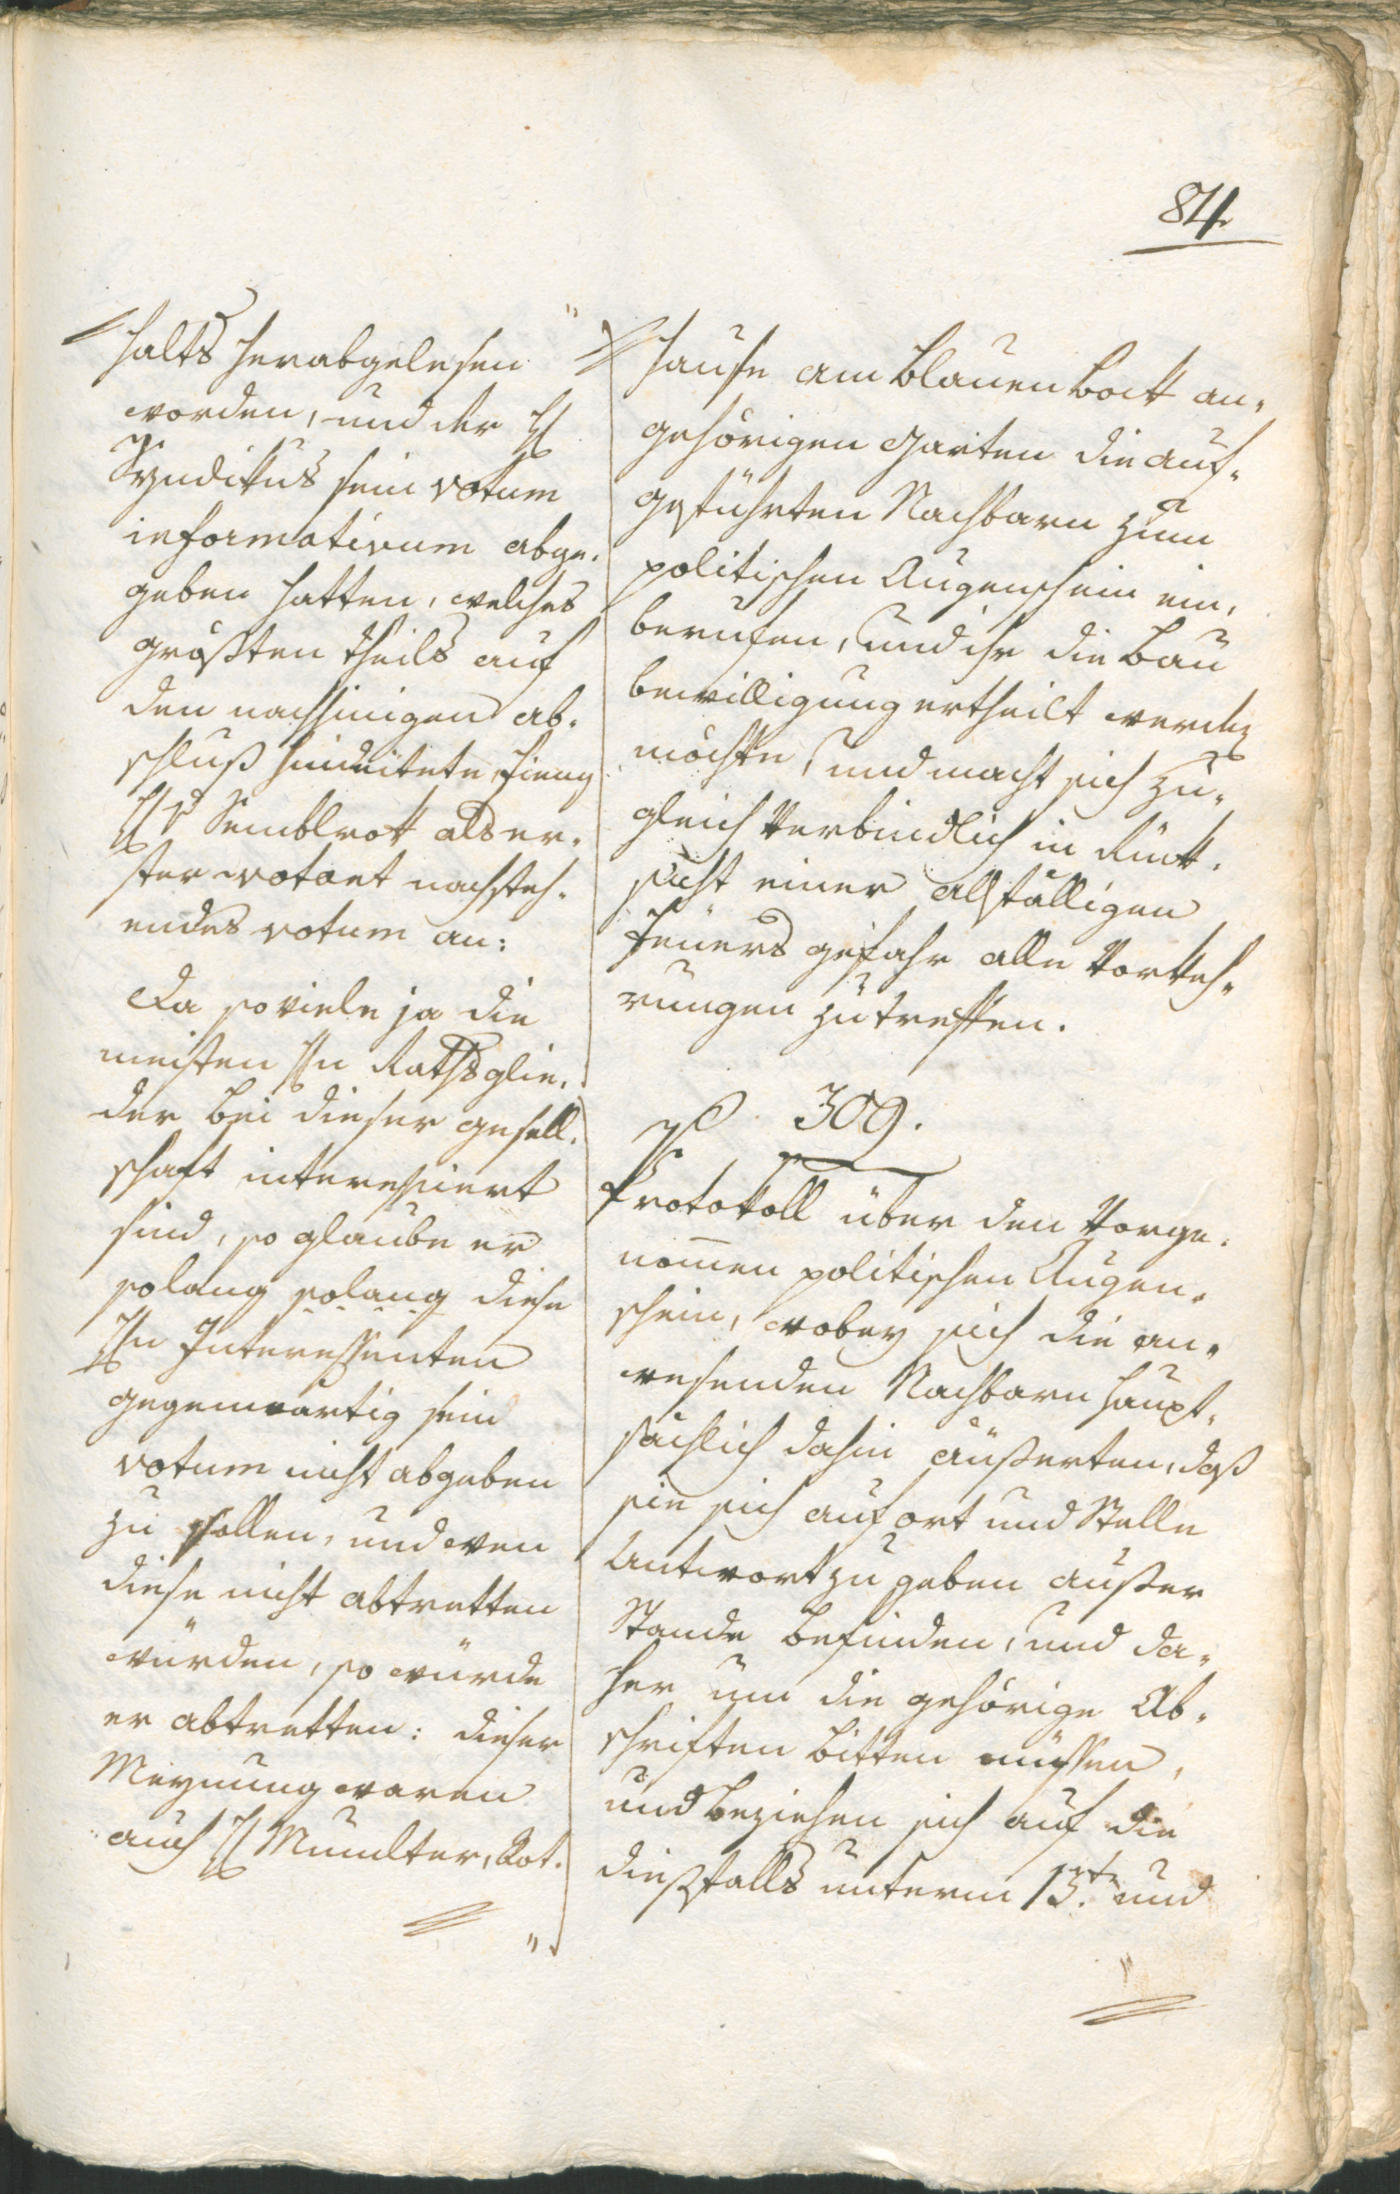 84.
halts herabgelesen
worden, und der H
Syndikus sein votum
informativum abge-
geben hatten, welches
größten theils auf
den nachhinigen ab-
schluß hindeitete, fieng
H v Semblrok als er-
ster votant nachsteh-
endes votum an:
Da so viele ja die
meisten Hn Rathsglie-
der bei dieser gesell-
schaft interessiert
sind, so glaube er
solang solang diese
Hn Interessenten
gegenwärtig sein
votum nicht abgeben
zu sollen, und wen
diese nicht abtretten
würden, so würde
er abtretten: dieser
Meynung waren
auch H Kot.
Hause am blauen Bock an-
gehörigen Garten die auf-
geführten Nachbarn zum
politischen Augenschein ein-
berufen, und ihr die Bau
bewilligung ertheilt werden
möchte, und macht sich zu-
gleich verbindlich in Rück-
sicht einer allfälligen
Feuers gefahr alle Vorkeh-
rungen zu treffen.
309.
Protokoll über den Vorge-
nomen politischen Augen-
schein, wobey sich die an-
wesenden Nachbarn haupt-
sächlich dahin äußerten, daß
sie sich auf ort und Stelle
Antwort zu geben außer
Stande befinden, und da-
her um die gehörige Ab-
schriften bitten müssen,
und beziehen sich auf die
dießfalls unterm 13.t und